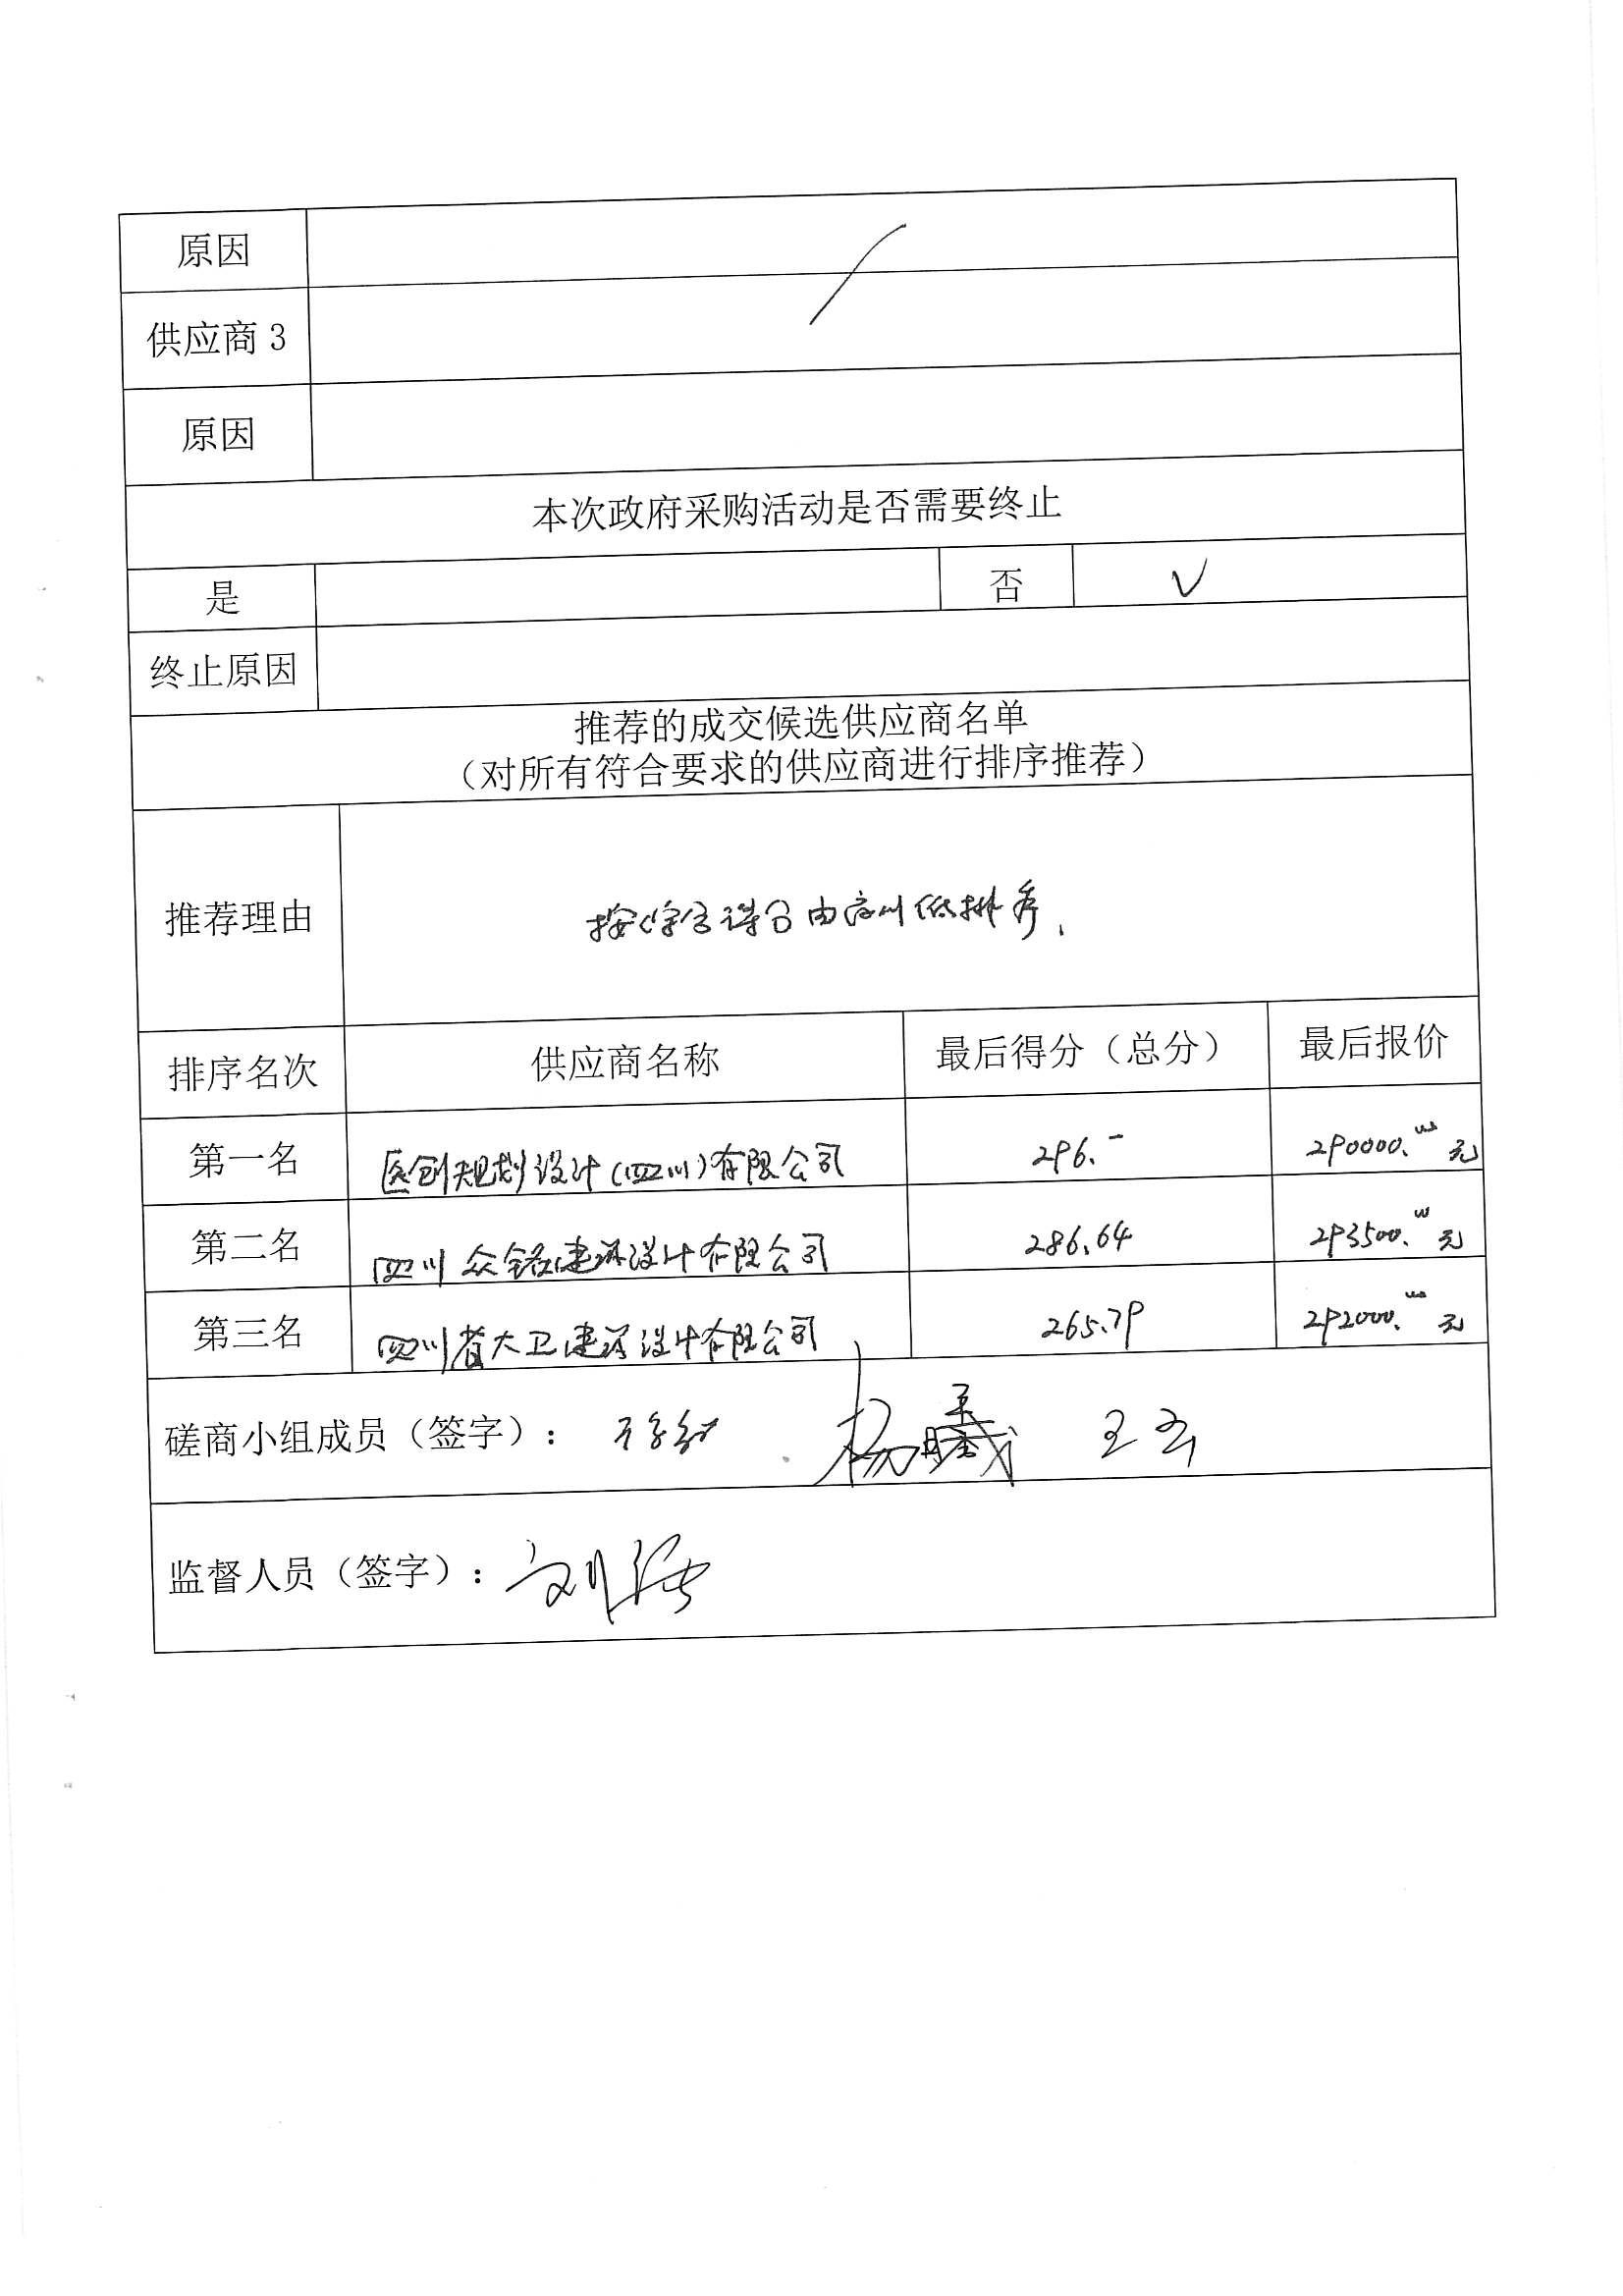 原因
供应商 3
原因
本次政府采购活动是否需要终止
是 否 √
终止原因
推荐的成交候选供应商名单
（对所有符合要求的供应商进行排序推荐）
推荐理由 按综合得分由高到低排序.
排序名次 供应商名称 最后得分（总分） 最后报价
第一名 医创规划设计(四川)有限公司 296.- 290000.00元
第二名 四川众铭建筑设计有限公司 286.64 293500.00元
第三名 四川省大卫建筑设计有限公司 265.79 292000.00元
磋商小组成员（签字）： 杨 王
监督人员（签字）： 刘